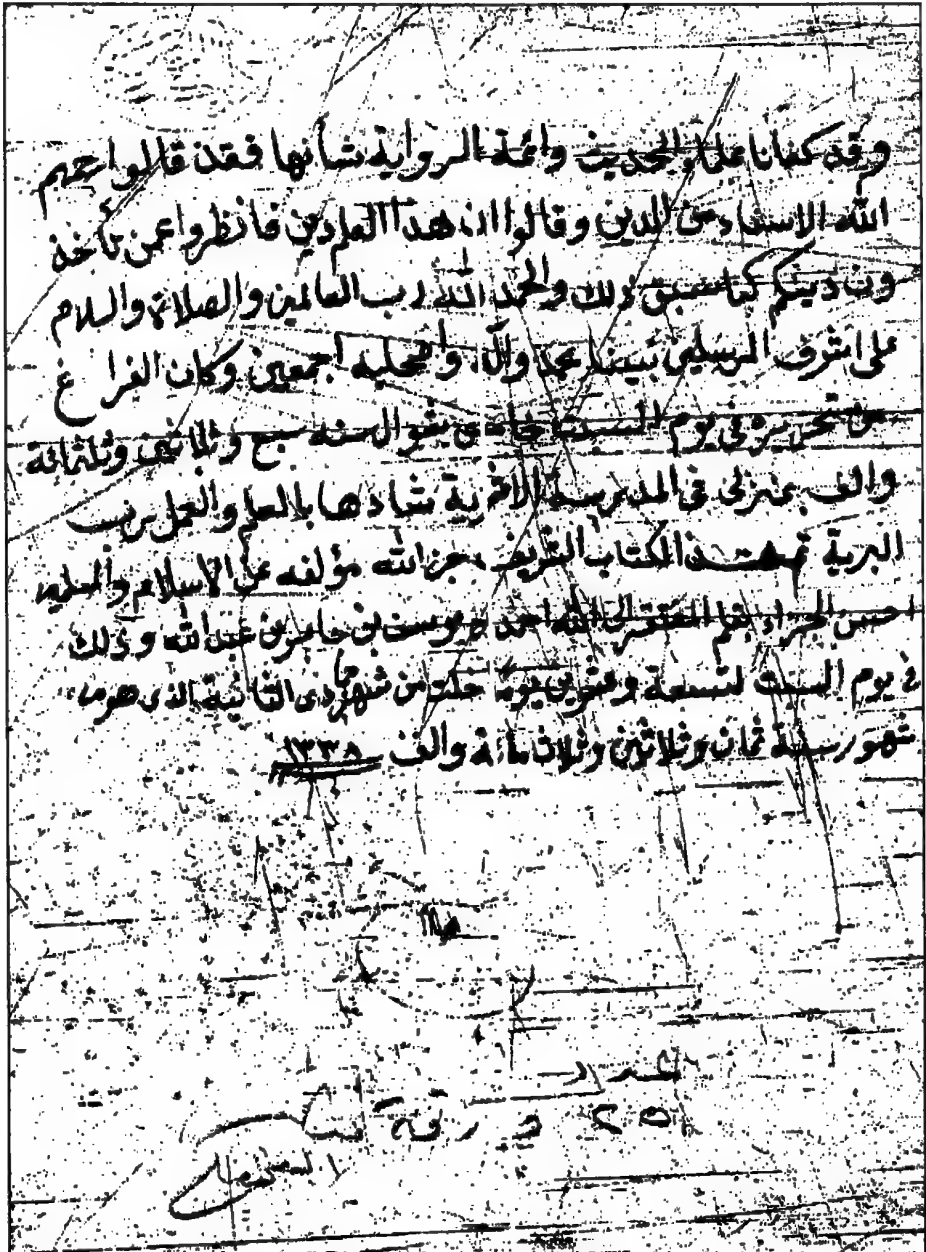 وقد كفانا علماء الحديث وائمة الرواية شأنها فقد قالوا رحمهم
الله الاسناد من الدين وقالوا ان هذا العلم دين فانظروا عمن تأخذ
ون دينكم كما سبق ذلك والحمد لله رب العالمين والصلاة والسلام
على اشرف المرسلين نبينا محمد وآله واصحابه اجمعين وكان الفراغ
من تحريره في يوم السبت شوال سنه سبع وثلاثين وثلثمائة
والف بمنزلى فى المدرسة بالعلم والعمل رب
البرية تم هذا الكتاب الشريف جزا الله مؤلفه عن الاسلام والمسلمين
احسن الجزاء بقلم المفتقر الى الله احمد بن يوسف بن جابر بن عبد الله وذلك
في يوم السبت لتسعة وعشرين يوم خلت من شهر جمادى الثانية الذى هو من
شهور سنة ثمان وثلاثين وثلاث مائة والف ١٣٣٨
عدد
٢٥ ورقة